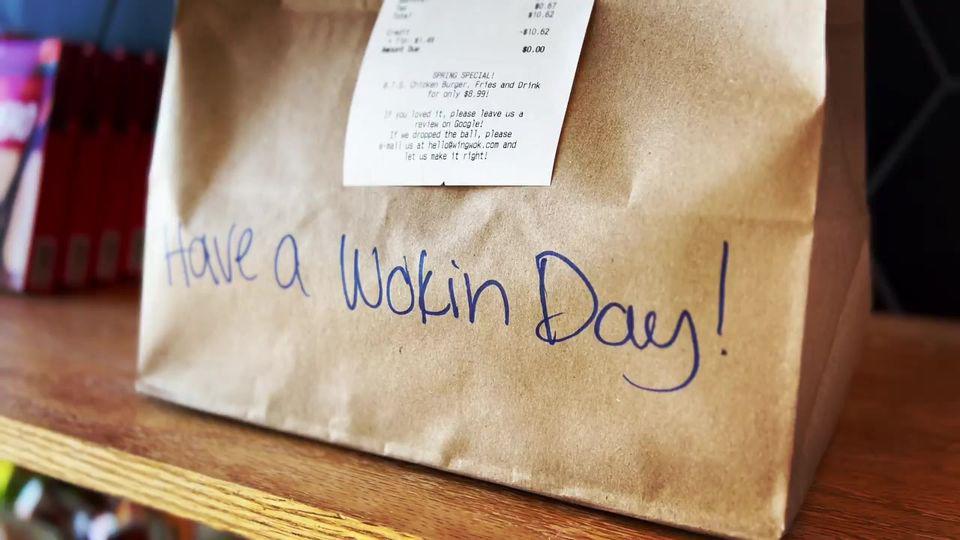 Tax $0.67
Total $10.62
Credit -$10.62
Amount Due $0.00
SPRING SPECIAL!
Chicken Burger, Fries and Drink
for only $8.99!
If you loved it, please leave us a
review on Google!
If we dropped the ball, please
e-mail us at hello@wingwok.com and
let us make it right!
Have a Wokin Day!